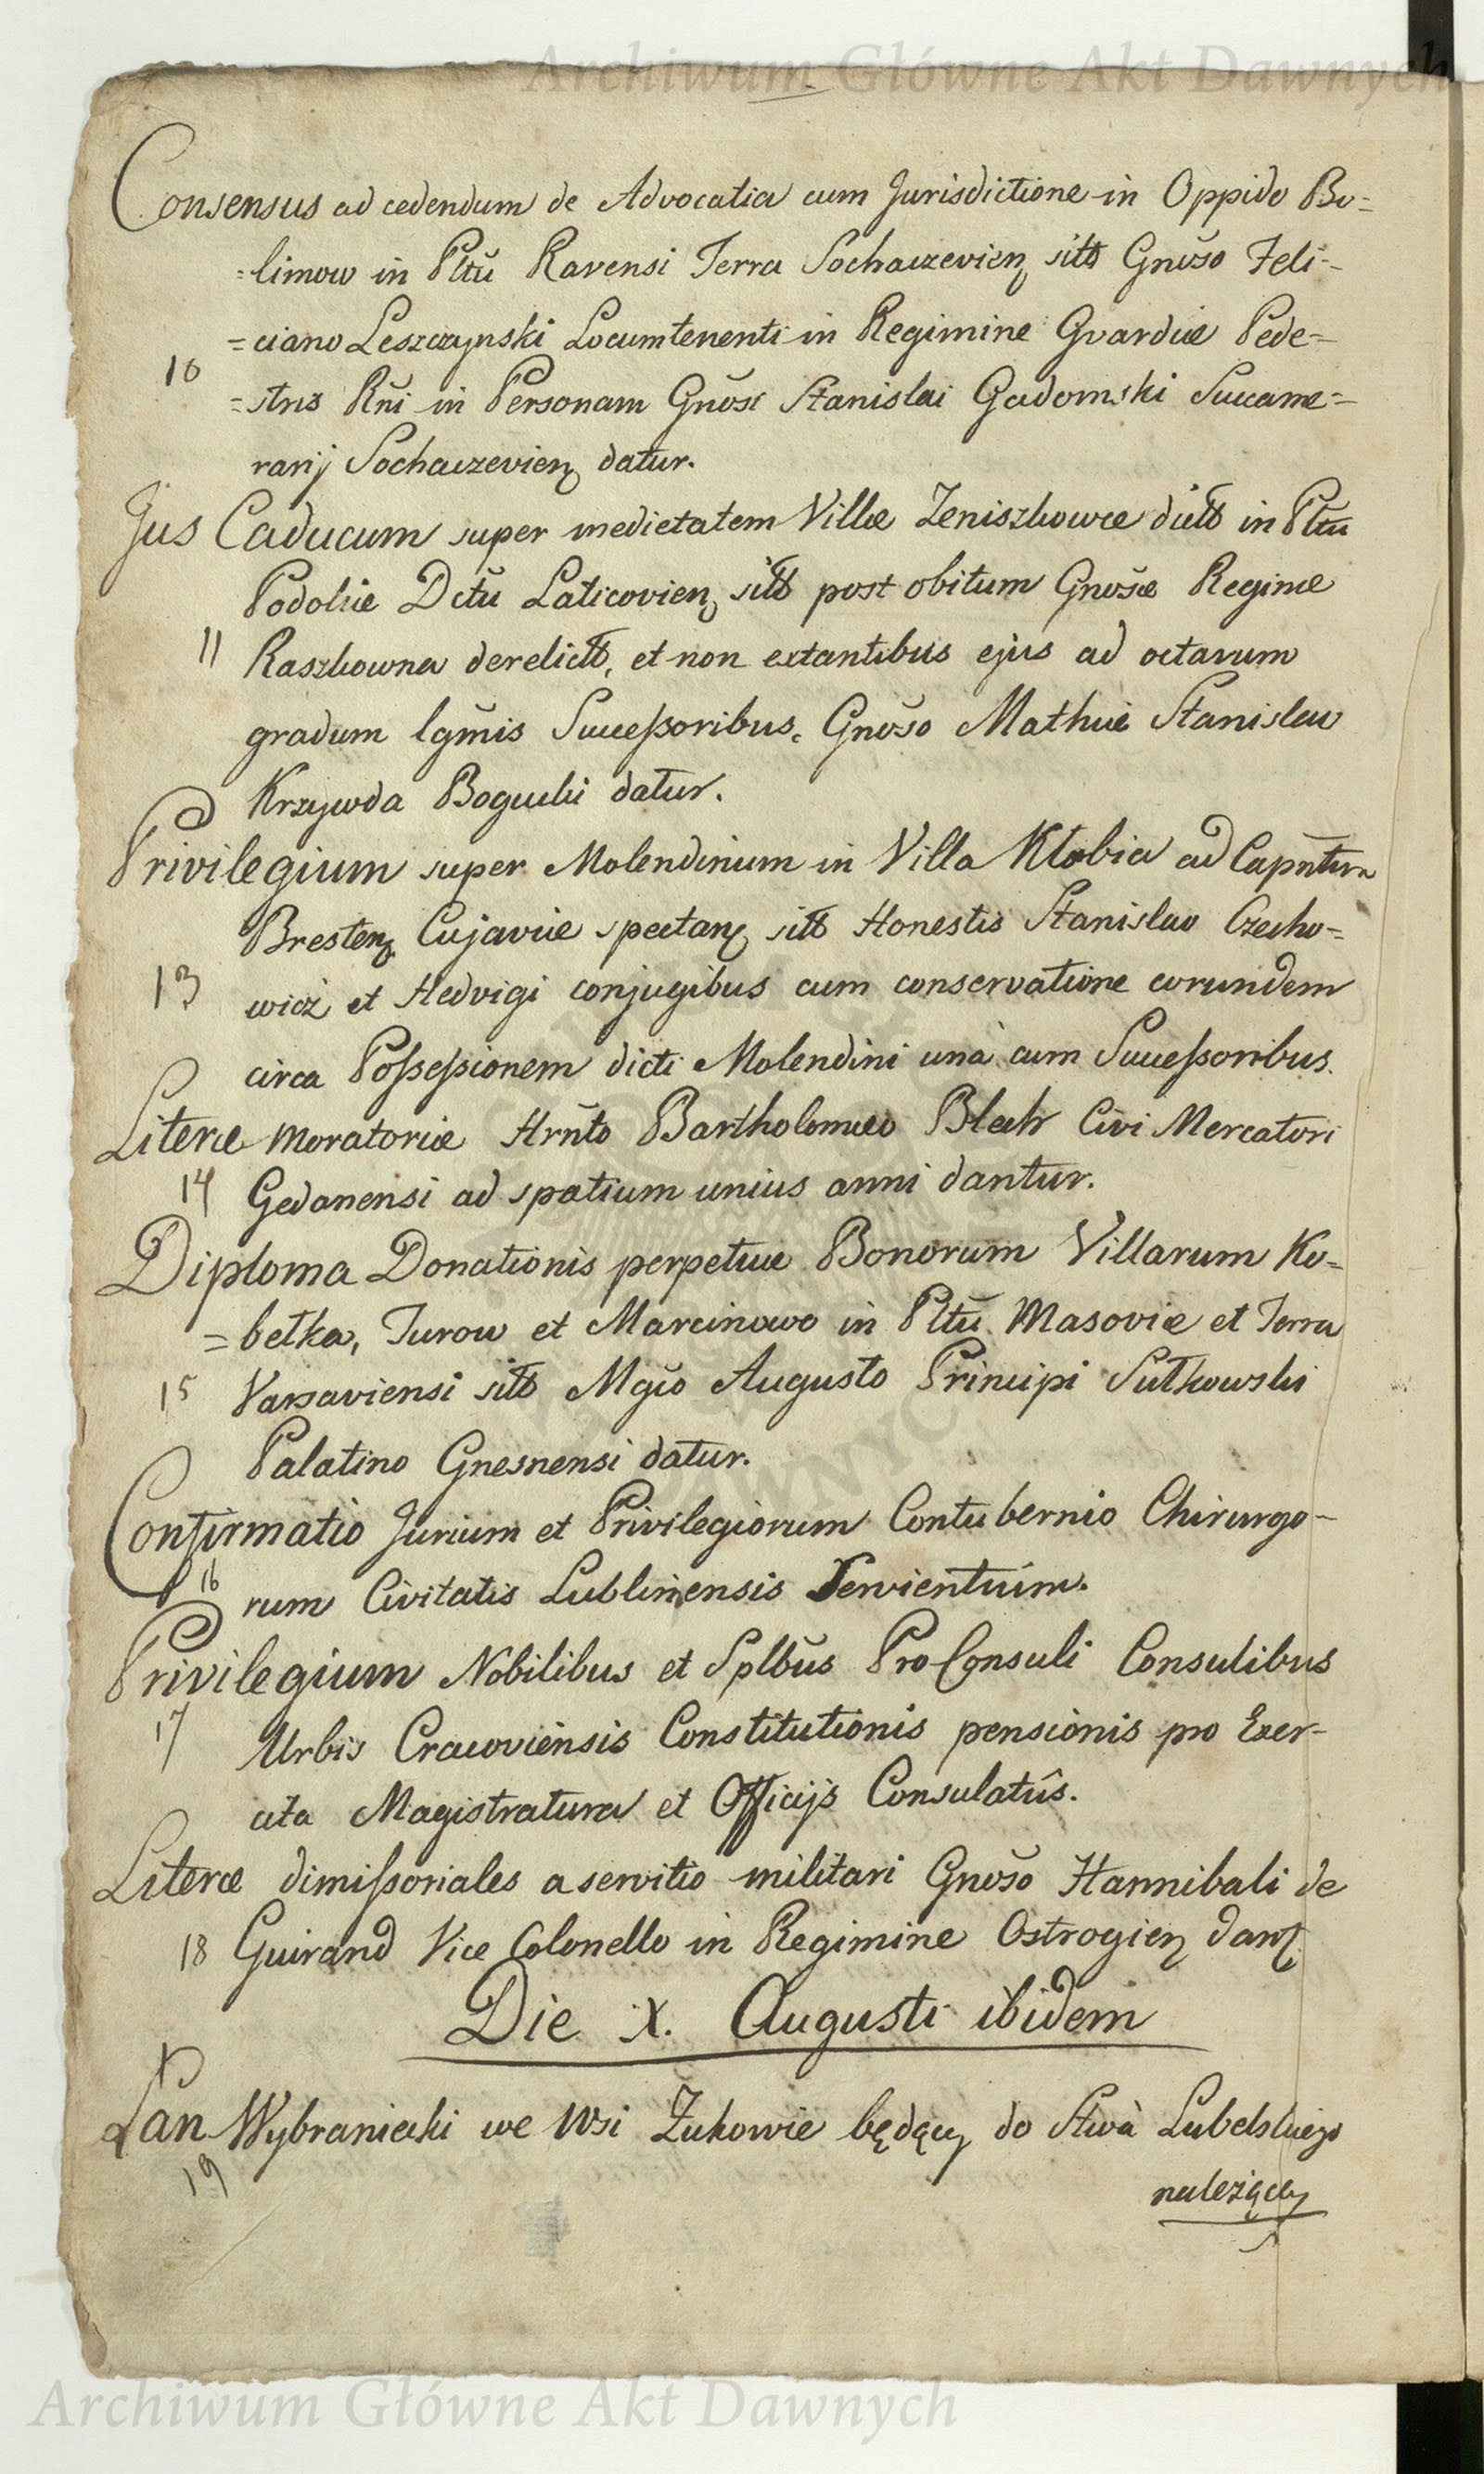 Archiwum Główne Akt Dawnych
Consensus ad cedendum de Advocatia cum Jurisdictione in Oppido Bo=
=limow in Pltũ Ravensi Terra Sochaczevien sitt Gnõso Feli=
=ciano Leszczynski Locumtenenti in Regimine Gvardiæ Pede=
10
=stris Rñi in Personam Gnõsi Stanislai Gadomski Succame=
rarij Sochaczevien datur.
Jus Caducum super medietatem Villæ Zeniszkowce dictt in Pltũ
Podoliæ Dctũ Laticovien sitt post obitum Gnõsæ Reginæ
11 Raszkowna derelictt, et non extantibus ejus ad octavum
gradum lgm̃is Succeſsoribus, Gnõso Mathiæ Stanislao
Krzywda Bogucki datur.
Privilegium super Molendinum in Villa Kłobia ad Capñtum
Bresten Cujaviæ spectan sitt Honestis Stanislao Czecho=
13 wicz et Hedvigi conjugibus cum conservatione eorundem
circa Poſseſsionem dicti Molendini unà cum Succeſsoribus.
Literæ Moratoriæ Hrñto Bartholomæo Blech Civi Mercatori
14 Gedanensi ad spatium unius anni dantur.
Diploma Donationis perpetuæ Bonorum Villarum Ko=
=bełka, Turow et Marcinowo in Pltũ Masoviæ et Terra
15 Varsaviensi sitt Mgõo Augusto Principi Sułkowski
Palatino Gnesnensi datur.
Confirmatio Jurium et Privilegiorum Contubernio Chirurgo-
16 rum Civitatis Lublinensis Servientium.
Privilegium Nobilibus et Splbũs Pro Consuli Consulibus
17 Urbis Cracoviensis Constitutionis pensionis pro Exer-
cita Magistratura et Officijs Consulatûs.
Literæ dimiſsoriales a servitio militari Gnõso Hannibali de
18 Guirand Vice Colonello in Regimine Ostrogien dant
Die X. Augusti ibidem
Łan Wybraniecki we Wsi Żukowie będący do Stwà Lubelskiego
19
należący
Archiwum Główne Akt Dawnych